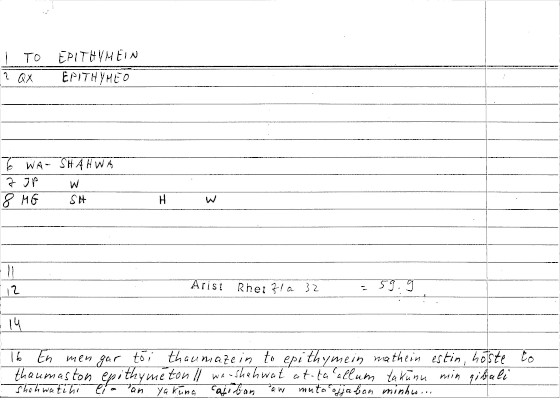 1 TO EPITHYMEIN
2 QX EPITHYMEO
6 WA- SHAHWA
7 JP W
8 MG SH H W
11
12 Arist Rhet 71a 32 = 59.9
14
16 En men gar tōi thaumazein to epithymein mathein estin, hōste to
thaumaston epithymēton // wa-shahwat at-ta'allum takūnu min qibali
shahwatihi li-'an yakūna 'aǧīban 'aw muta'aǧǧaban minhu...